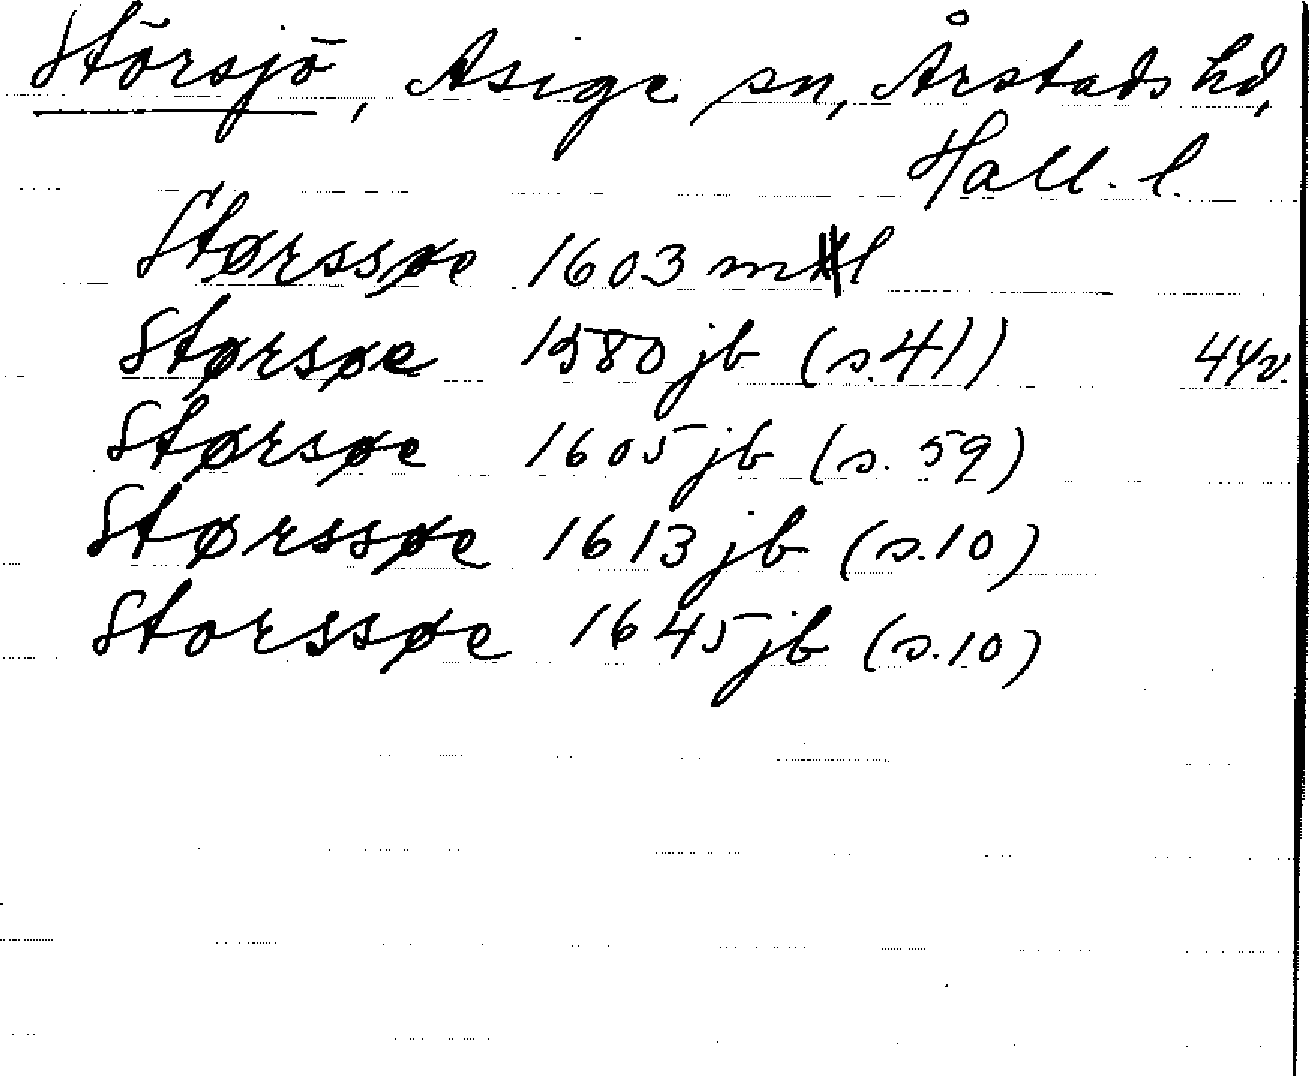 Störsjö, Asige sn, Årstads hd,
Hall. l.
Størssøe 1603 ml
Størsøe 1580 jb (s.41) 44v.
Størsøe 1605 jb (s. 59)
Størssøe 1613 jb (s.10)
Storssøe 1645 jb (s.10)